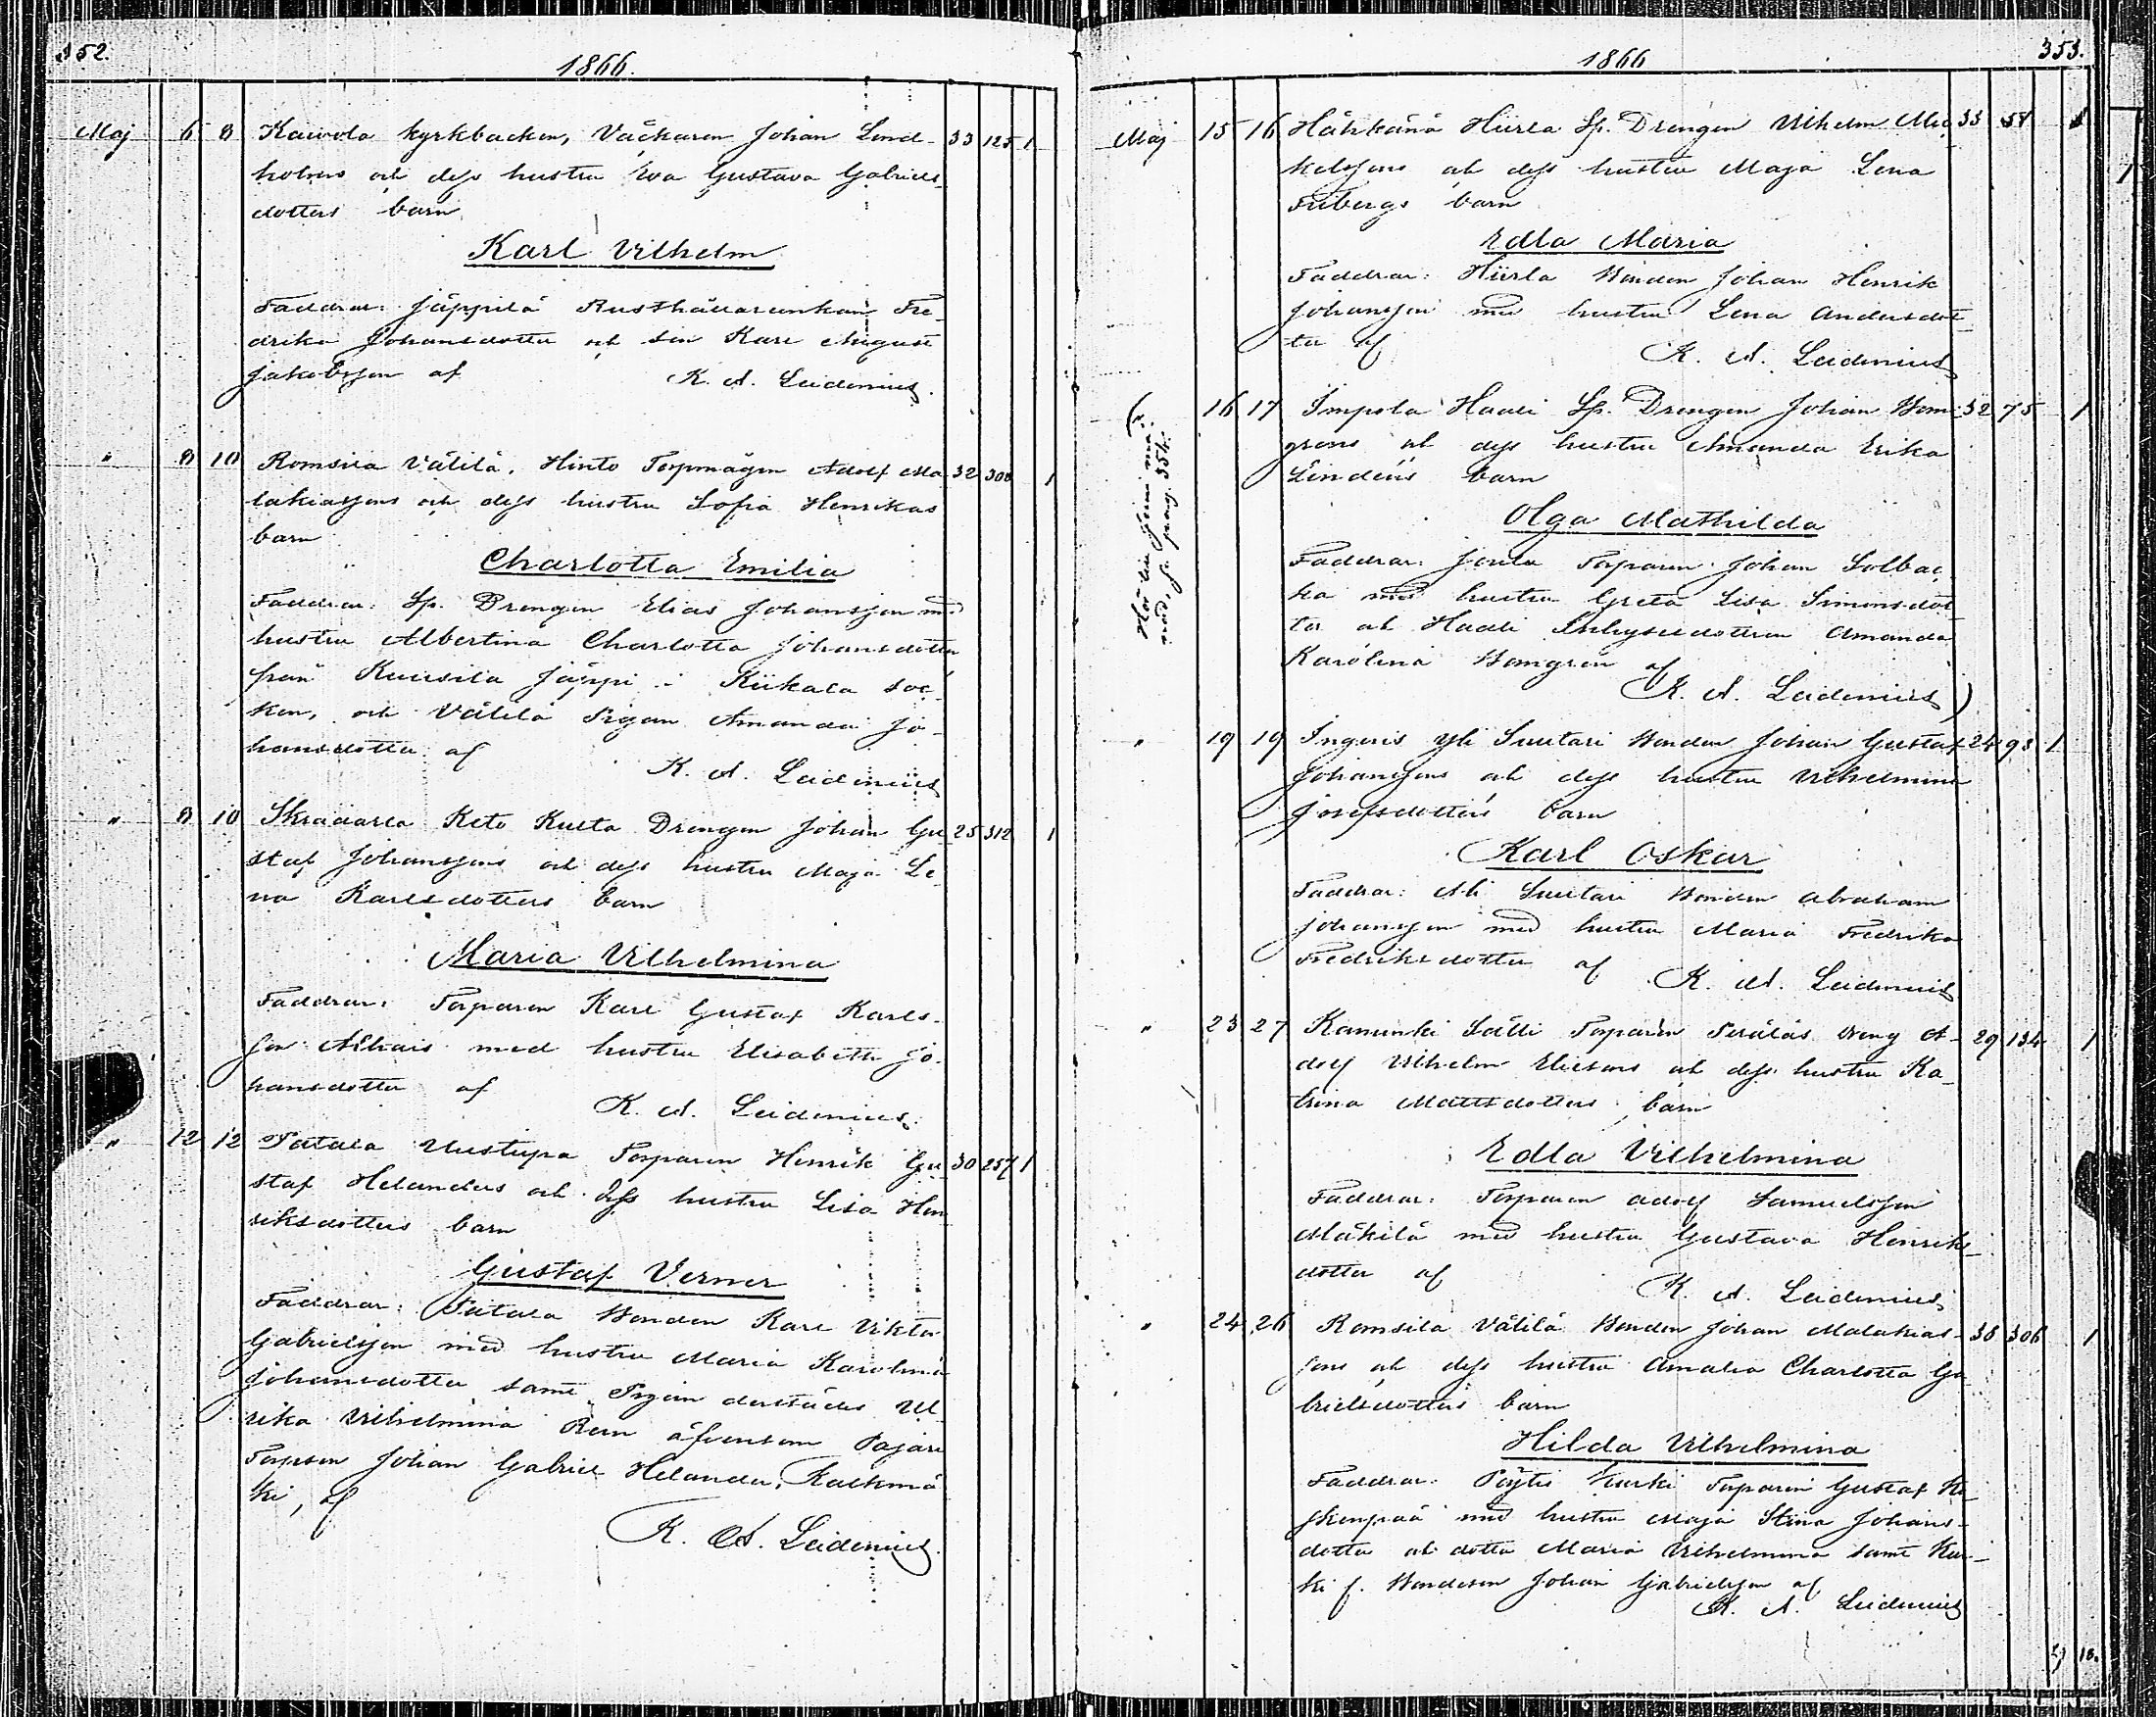 352.
1866.
Maj 6 8 Kaivola kyrkbacken, Väckaren Johan Lind- 33 125 1
holms och dess hustru Eva Gustava Gabriels
dotters barn
Karl Vilhelm
Faddrar: Jäppilä Rusthållarinkan Fre
drika Johansdotter och son Karl August
Jakobsson af K. A. Leidenius.
" 8 10 Romsila Välilä, Hinto Torpmågen Adolf Ma 32 308 1
lakiassons och dess hustru Sofia Henrikas
barn
Charlotta Emilia
Faddrar: Sp. Drengen Elias Johansson med
hustru Albertina Charlotta Johansdotter
från Kuusila Jäppi i Kiikala soc
ken, och Välilä Pigan Amanda Jo-
hansdotter af
K. A. Leidenius
" 8 10 Skradarla Keto Kulta Drengen Johan Gu 25 312 1
staf Johanssons och dess hustru Maja Le
na Karlsdotters barn
Maria Vilhelmina
Faddrar: Torparen Karl Gustaf Karls-
son Alhais med hustru Elisabeth Jo-
hansdotter af K. A. Leidenius.
" 12 12 Patala Uustupa Torparen Henrik Gu 30 257 1
staf Helanders och dess hustru Lisa Hen
riksdotters barn
Gustaf Verner
Faddrar: Patala Bonden Karl Viktor
Gabrielsson med hustru Maria Karolina
Johansdotter samt Pigan derstädes Ul
rika Vilhelmina Ren äfvensom Pajari
Torpson Johan Gabriel Helander, Kalkmä
ki, af
K. A. Leidenius.
1866
353.
Maj 15 16 Hähkänä Hiirla Sp. Drengen Vilhelm Mic 33 58 1
kelssons och dess hustru Maja Lena
Fribergs barn
Edla Maria
Faddrar: Hiirla Bonden Johan Henrik
Johansson med hustru Lena Andersdot
ter af K. A. Leidenius
Hör till Juni må-
nad, se pag. 354.
( 16 17 Impola Haali Sp. Drengen Johan Hom- 32 75 1
grens och dess hustru Amanda Erika
Lindens barn
Olga Mathilda
Faddrar: Torparen Johan Solbac
ka med hustru Greta Lisa Simonsdot
ter och Haali Inhysesdottren Amanda
Karolina Homgren af
K. A. Leidenius )
" 19 19 Ingeris Yli Suutari Bonden Johan Gustaf 24 98 1
Johanssons och dess hustru Vilhelmina
Josefsdotters barn
Karl Oskar
Faddrar: Ali Suutari Bonden Abraham
Johansson med hustru Maria Fredrika
Fredriksdotter af K. A. Leidenius
" 23 27 Kaninki Sälli Torparen Peräläs dreng A- 29 134 1
dolf Vilhelm Eliesons och dess hustru Ka
trina Mattsdotters barn
Edla Vilhelmina
Faddrar: Torparen Adolf Samuelsson
Mäkilä med hustru Gustava Henriks
dotter af K. A. Leidenius
" 24 26 Romsila Välilä Bonden Johan Malakias- 38 306 1
sons och dess hustru Amalia Charlotta Ga
brielsdotters barn
Hilda Vilhelmina
Faddrar: Pöytiö Kurki Torparen Gustaf Ke
skenpää med hustru Maja Stina Johans-
dotter och dotter Maria Vilhelmina samt Kur-
ki f. Bondeson Johan Gabrielsson af
K. A. Leidenius